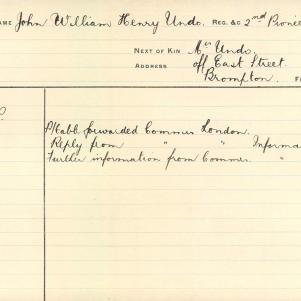 AME John William Henry Undo. REG. &C 2nd Pionee
NEXT OF KIN Mrs Undo.
ADDRESS off East Street.
Brompton. F
P/Cabb forwarded Commer London.
Reply from " " Informa
Further information from Commer. "